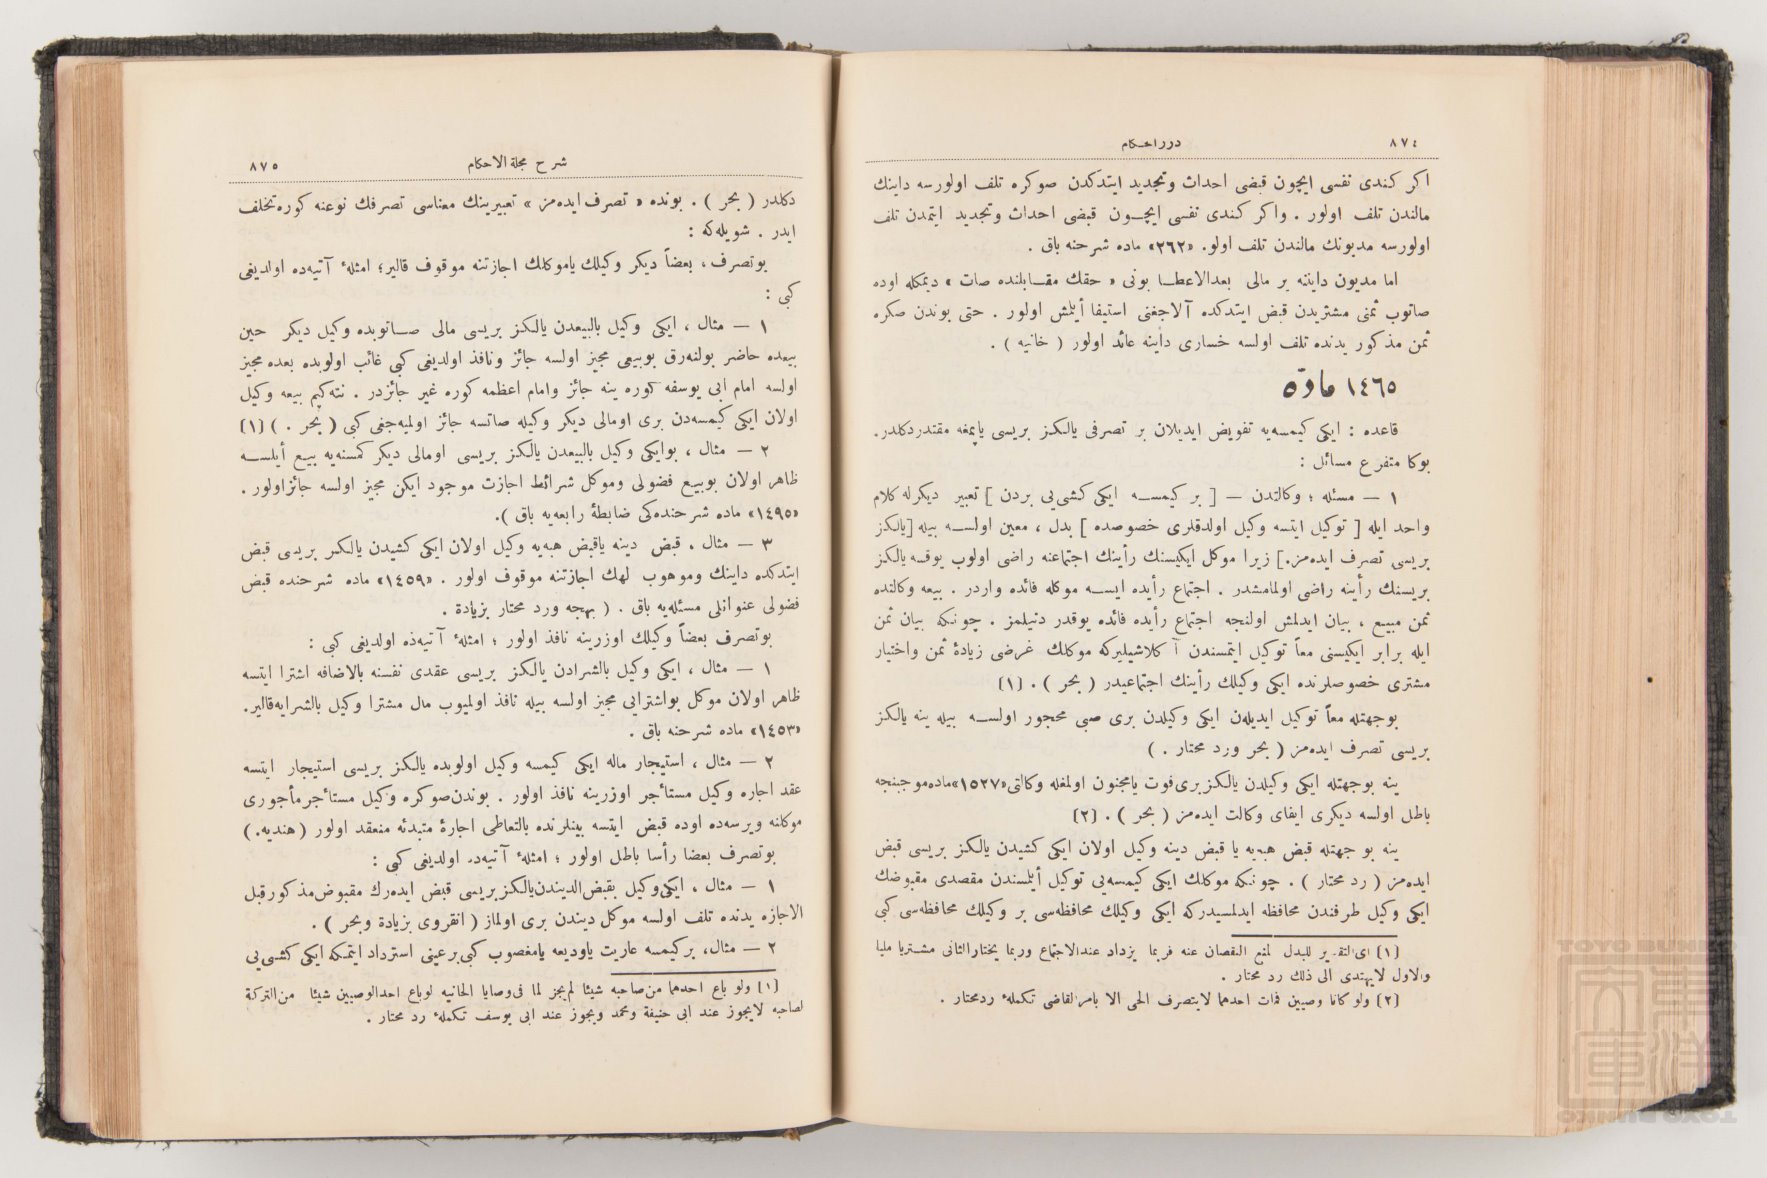 ٨٧٤
درر احكام
اكر كندی نفسی ایچون قبضی احداث وتجدید ایتدكدن صوكره تلف اولورسه داینك
مالندن تلف اولور . واكر كندی نفسی ایچون قبضی احداث وتجدید ایتمدن تلف
اولورسه مدیونك مالندن تلف اولو. «٢٦٢» ماده شرحنه باق .
اما مدیون داینته بر مالی بعدالاعطا بونی « حقك مقابلنده صات » دیمكله اوده
صاتوب ثمنی مشتریدن قبض ایتدكده آلاجغنی استیفا أیلمش اولور . حتی بوندن صكره
ثمن مذكور یدنده تلف اولسه خساری داینه عائد اولور ( خانیه ) .
١٤٦٥ مادّه
قاعده : ایكی كیمسه‌یه تفویض ایدیلان بر تصرفی یالكز بریسی یاپمغه مقتدردكلدر.
بوكا متفرع مسائل :
١ — مسئله ؛ وكالتدن — [ بر كیمسه ایكی كشی‌یی بردن ] تعبیر دیكرله كلام
واحد ایله [ توكیل ایتسه وكیل اولدقلری خصوصده ] بدل ، معین اولسه بیله [یالكز
بریسی تصرف ایده‌مز.] زیرا موكل ایكیسنك رأینك اجتماعنه راضی اولوب یوقسه یالكز
بریسنك رأینه راضی اولمامشدر . اجتماع رأیده ایسه موكله فائده واردر . بیعه وكالتده
ثمن مبیع ، بیان ایدلمش اولنجه اجتماع رأیده فائده یوقدر دنیلمز . چونكه بیان ثمن
ایله برابر ایكیسنی معاً توكیل ایتمسندن آ كلاشیلیركه موكلك غرضی زیادهٔ ثمن واختیار
مشتری خصوصلرنده ایكی وكیلك رأینك اجتماعیدر ( بحر ) . (١)
بوجهتله معاً توكیل ایدیلەن ایكی وكیلدن بری صبی محجور اولسه بیله ینه یالكز
بریسی تصرف ایده‌مز ( بحر ورد محتار . )
ینه بوجهتله ایكی وكیلدن یالكزبری‌فوت یامجنون اولمغله وكالتی«١٥٢٧»ماده‌موجبنجه
باطل اولسه دیكری ایفای وكالت ایده‌مز ( بحر ) . (٢)
ینه بو جهتله قبض هبه‌یه یا قبض دینه وكیل اولان ایكی كشیدن یالكز بریسی قبض
ایده‌مز ( رد محتار ) . چونكه موكلك ایكی كیمسه‌یی توكیل أیلمسندن مقصدی مقبوضك
ایكی وكیل طرفندن محافظه ایدلمسیدركه ایكی وكیلك محافظه‌سی بر وكیلك محافظه‌سی كبی
(١) ای‌التقدیر للبدل لمنع النقصان عنه فربما یزداد عندالاجتماع وربما یختارالثانی مشتریا ملیا
والاول لایهتدی الی ذلك رد محتار .
(٢) ولو كانا وصیین فمات احدهما لایتصرف الحی الا بامرالقاضی تكملهٔ ردمحتار .
شرح مجلة الاحكام
٨٧٥
دكلدر ( بحر ) . بونده « تصرف ایده‌مز » تعبیرینك معناسی تصرفك نوعنه كوره‌تخلف
ایدر . شویله‌كه :
بوتصرف ، بعضاً دیكر وكیلك یاموكلك اجازتنه موقوف قالیر؛ امثلهٔ آتیه‌ده اولدیغی
كبی :
١ — مثال ، ایكی وكیل بالبیعدن یالكز بریسی مالی صاتوبده وكیل دیكر حین
بیعده حاضر بولنەرق بوبیعی مجیز اولسه جائز ونافذ اولدیغی كبی غائب اولوبده بعده مجیز
اولسه امام ابی یوسفه كوره ینه جائز وامام اعظمه كوره غیر جائزدر . نته‌كیم بیعه وكیل
اولان ایكی كیمسه‌دن بری اومالی دیكر وكیله صاتسه جائز اولمیه‌جغی كبی ( بحر . ) (١)
٢ — مثال ، بوایكی وكیل بالبیعدن یالكز بریسی اومالی دیكر كمسنه‌یه بیع أیلسه
ظاهر اولان بوبیع فضولی وموكل شرائط اجازت موجود ایكن مجیز اولسه جائزاولور .
«١٤٩٥» ماده شرحنده‌كی ضابطهٔ رابعه‌یه باق ).
٣ — مثال . قبض دینه یاقبض هبه‌یه وكیل اولان ایكی كشیدن یالكز بریسی قبض
ایتدكده داینك وموهوب لهك اجازتنه موقوف اولور . «١٤٥٩» ماده شرحنده قبض
فضولی عنوانلی مسئله‌یه باق . ( بهجه ورد محتار بزیادة .
بوتصرف بعضاً وكیلك اوزرینه نافذ اولور ؛ امثلهٔ آتیه‌ده اولدیغی كبی :
١ — مثال ، ایكی وكیل بالشرادن یالكز بریسی عقدی نفسنه بالاضافه اشترا ایتسه
ظاهر اولان موكل بواشترایی مجیز اولسه بیله نافذ اولمیوب مال مشترا وكیل بالشرایه‌قالیر.
«١٤٥٣» ماده شرحنه باق .
٢ — مثال ، استیجار ماله ایكی كیمسه وكیل اولوبده یالكز بریسی استیجار ایتسه
عقد اجاره وكیل مستأجر اوزرینه نافذ اولور . بوندن‌صوكره وكیل مستأجرمأجوری
موكلنه ویرسه‌ده اوده قبض ایتسه بینلرنده بالتعاطی اجارهٔ مبتدئه منعقد اولور (هندیه.)
بوتصرف بعضا رأسا باطل اولور ؛ امثلهٔ آتیه‌ده اولدیغی كبی :
١ — مثال ، ایكی‌وكیل بقبض‌الدیندن‌یالكزبریسی قبض ایده‌رك مقبوض‌مذكورقبل
الاجازه یدنده تلف اولسه موكل دیندن بری اولماز ( انقروی بزیادة وبحر ) .
٢ — مثال، بركیمسه عاریت یاودیعه یامغصوب كبی‌برعینی استرداد ایتمكه ایكی كشی‌یی
(١) ولو باع احدهما من‌صاحبه شیئا لم‌یجز لما فی‌وصایا الخانیه لوباع احدالوصیین شیئا من‌التركة
لصاحبه لایجوز عند ابی حنیفة ومحمد ویجوز عند ابی یوسف تكملهٔ رد محتار .
TOYO BUNKO